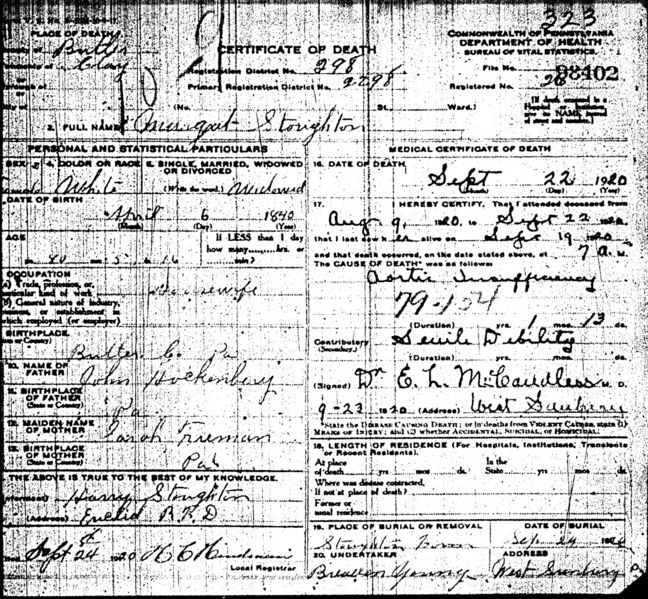 323
PLACE OF DEATH
Butler
Clay
CERTIFICATE OF DEATH
Registration District No. 298
Primary Registration District No. 2298
COMMONWEALTH OF PENNSYLVANIA
DEPARTMENT OF HEALTH
BUREAU OF VITAL STATISTICS
File No. 98402
Registered No. 26
(No. St. Ward.)
[If death occurred in a Hospital or Institution give its NAME, instead of street and number.]
2. FULL NAME Margaret Stoughton
PERSONAL AND STATISTICAL PARTICULARS
SEX 4. COLOR OR RACE White 5. SINGLE, MARRIED, WIDOWED OR DIVORCED (Write the word.) Widowed
DATE OF BIRTH
April 6 1840
(Month) (Day) (Year)
AGE
80 5 16
If LESS than 1 day how many hrs. or min.?
OCCUPATION
(a) Trade, profession, or particular kind of work Housewife
(b) General nature of industry, business, or establishment in which employed (or employer)
BIRTHPLACE
(State or Country) Butler Co. Pa
10. NAME OF FATHER John Hockenberry
11. BIRTHPLACE OF FATHER (State or Country) Pa
12. MAIDEN NAME OF MOTHER Sarah Freeman
13. BIRTHPLACE OF MOTHER (State or Country) Pa
THE ABOVE IS TRUE TO THE BEST OF MY KNOWLEDGE.
(Informant) Harry Stoughton
(Address) Euclid R.F.D
Sept 24 1920
Local Registrar
MEDICAL CERTIFICATE OF DEATH
16. DATE OF DEATH
Sept 22 1920
(Month) (Day) (Year)
17. I HEREBY CERTIFY, That I attended deceased from
Aug 9, 1920, to Sept 22 1920
that I last saw her alive on Sept 19 1920
and that death occurred, on the date stated above, at 7 A. M.
The CAUSE OF DEATH* was as follows:
Aortic Insufficiency
79-154
(Duration) yrs. 1 mos. 13 ds.
Contributory (Secondary) Senile Debility
(Duration) yrs. mos. ds.
(Signed) Dr E. L. McCandless M. D.
9-22 1920 (Address) West Sunbury
*State the DISEASE CAUSING DEATH; or in deaths from VIOLENT CAUSES, state (1) MEANS OF INJURY; and (2) whether ACCIDENTAL, SUICIDAL, or HOMICIDAL.
18. LENGTH OF RESIDENCE (For Hospitals, Institutions, Transients or Recent Residents.)
At place of death yrs. mos. ds. In the State yrs. mos. ds.
Where was disease contracted, If not at place of death?
Former or usual residence
19. PLACE OF BURIAL OR REMOVAL DATE OF BURIAL
Stoughton Sep. 24 1920
20. UNDERTAKER ADDRESS
Young West Sunbury